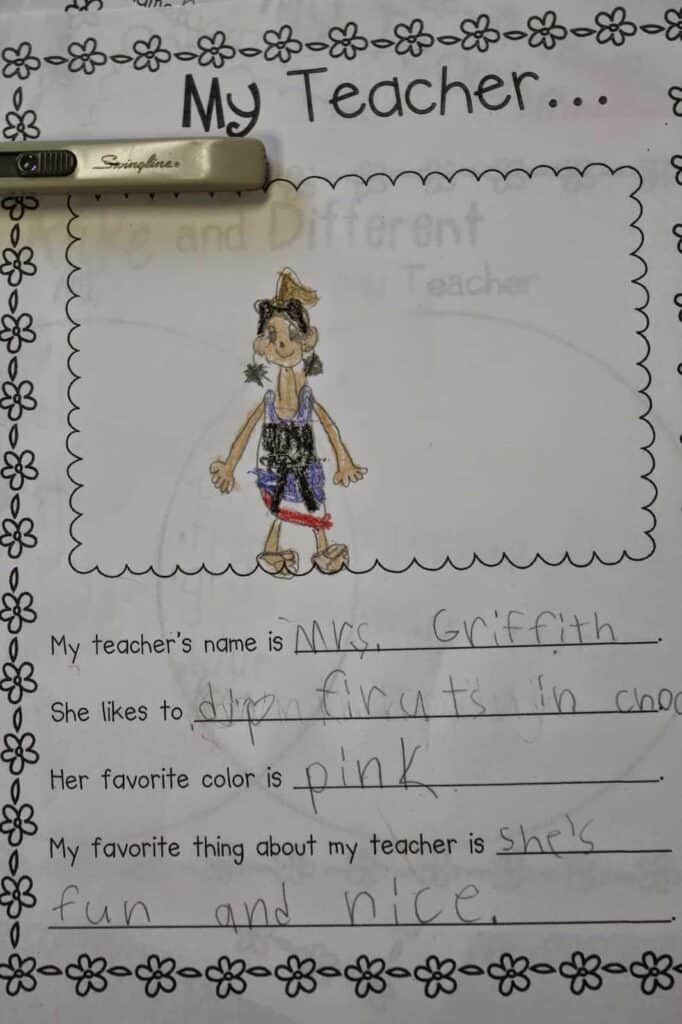 My Teacher...
Swingline®
and Different
My Teacher
My teacher's name is Mrs. Griffith.
She likes to dip firuts in choc
Her favorite color is pink.
My favorite thing about my teacher is she's
fun and nice.